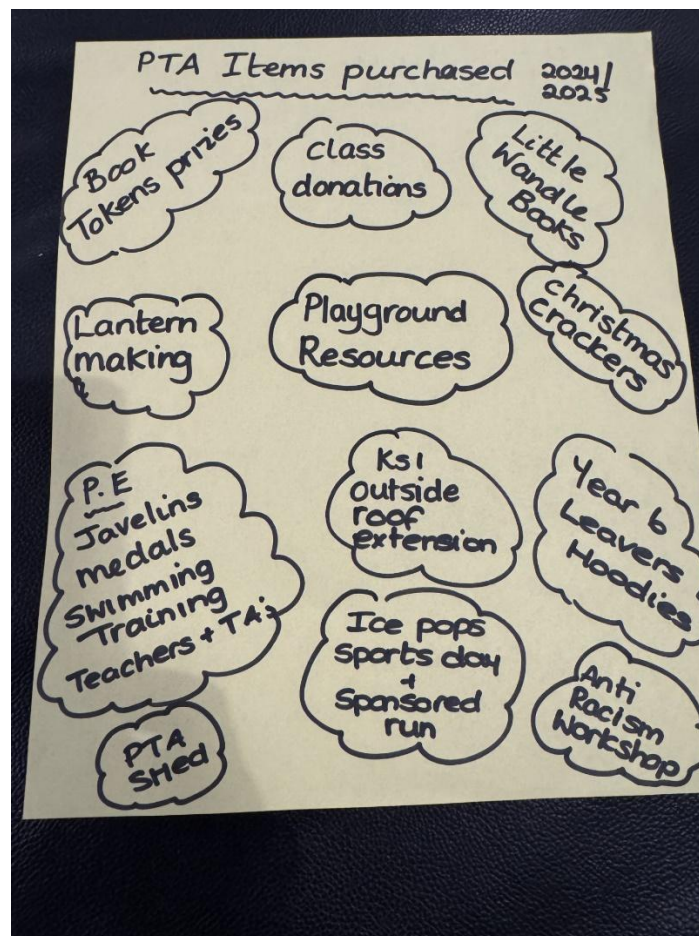 PTA Items purchased 2024/
2025
Book
Tokens prizies
class
donations
Little
Wandle
Books
Lantern
making
Playground
Resources
christmas
crackers
P.E
Javelins
medals
Swimming
Training
Teachers + TA's
KS1
outside
roof
extension
Year 6
Leavers
Hoodies
Ice pops
Sports day
+
Sponsored
run
Anti
Racism
Workshop
PTA
SHed